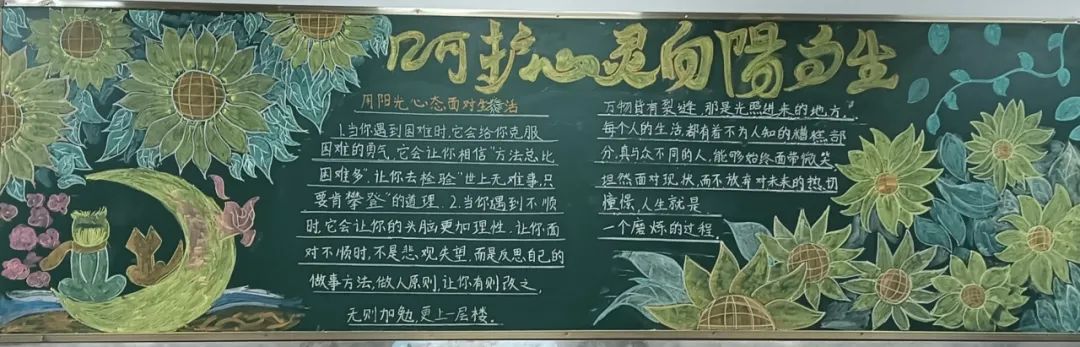 呵护心灵向陽而生
用阳光心态面对生活
1.当你遇到困难时,它会给你克服
困难的勇气,它会让你相信"方法总比
困难多",让你去检验"世上无难事,只
要肯攀登"的道理.2.当你遇到不顺
时,它会让你的头脑更加理性.让你面
对不顺时,不是悲观失望,而是反思自己的
做事方法,做人原则,让你有则改之,
无则加勉,更上一层楼。
万物皆有裂缝,那是光照进来的地方.
每个人的生活都有着不为人知的糟糕部
分,真与众不同的人,能够始终面带微笑,
坦然面对现状,而不放弃对未来的热切
憧憬,人生就是
一个磨炼的过程.